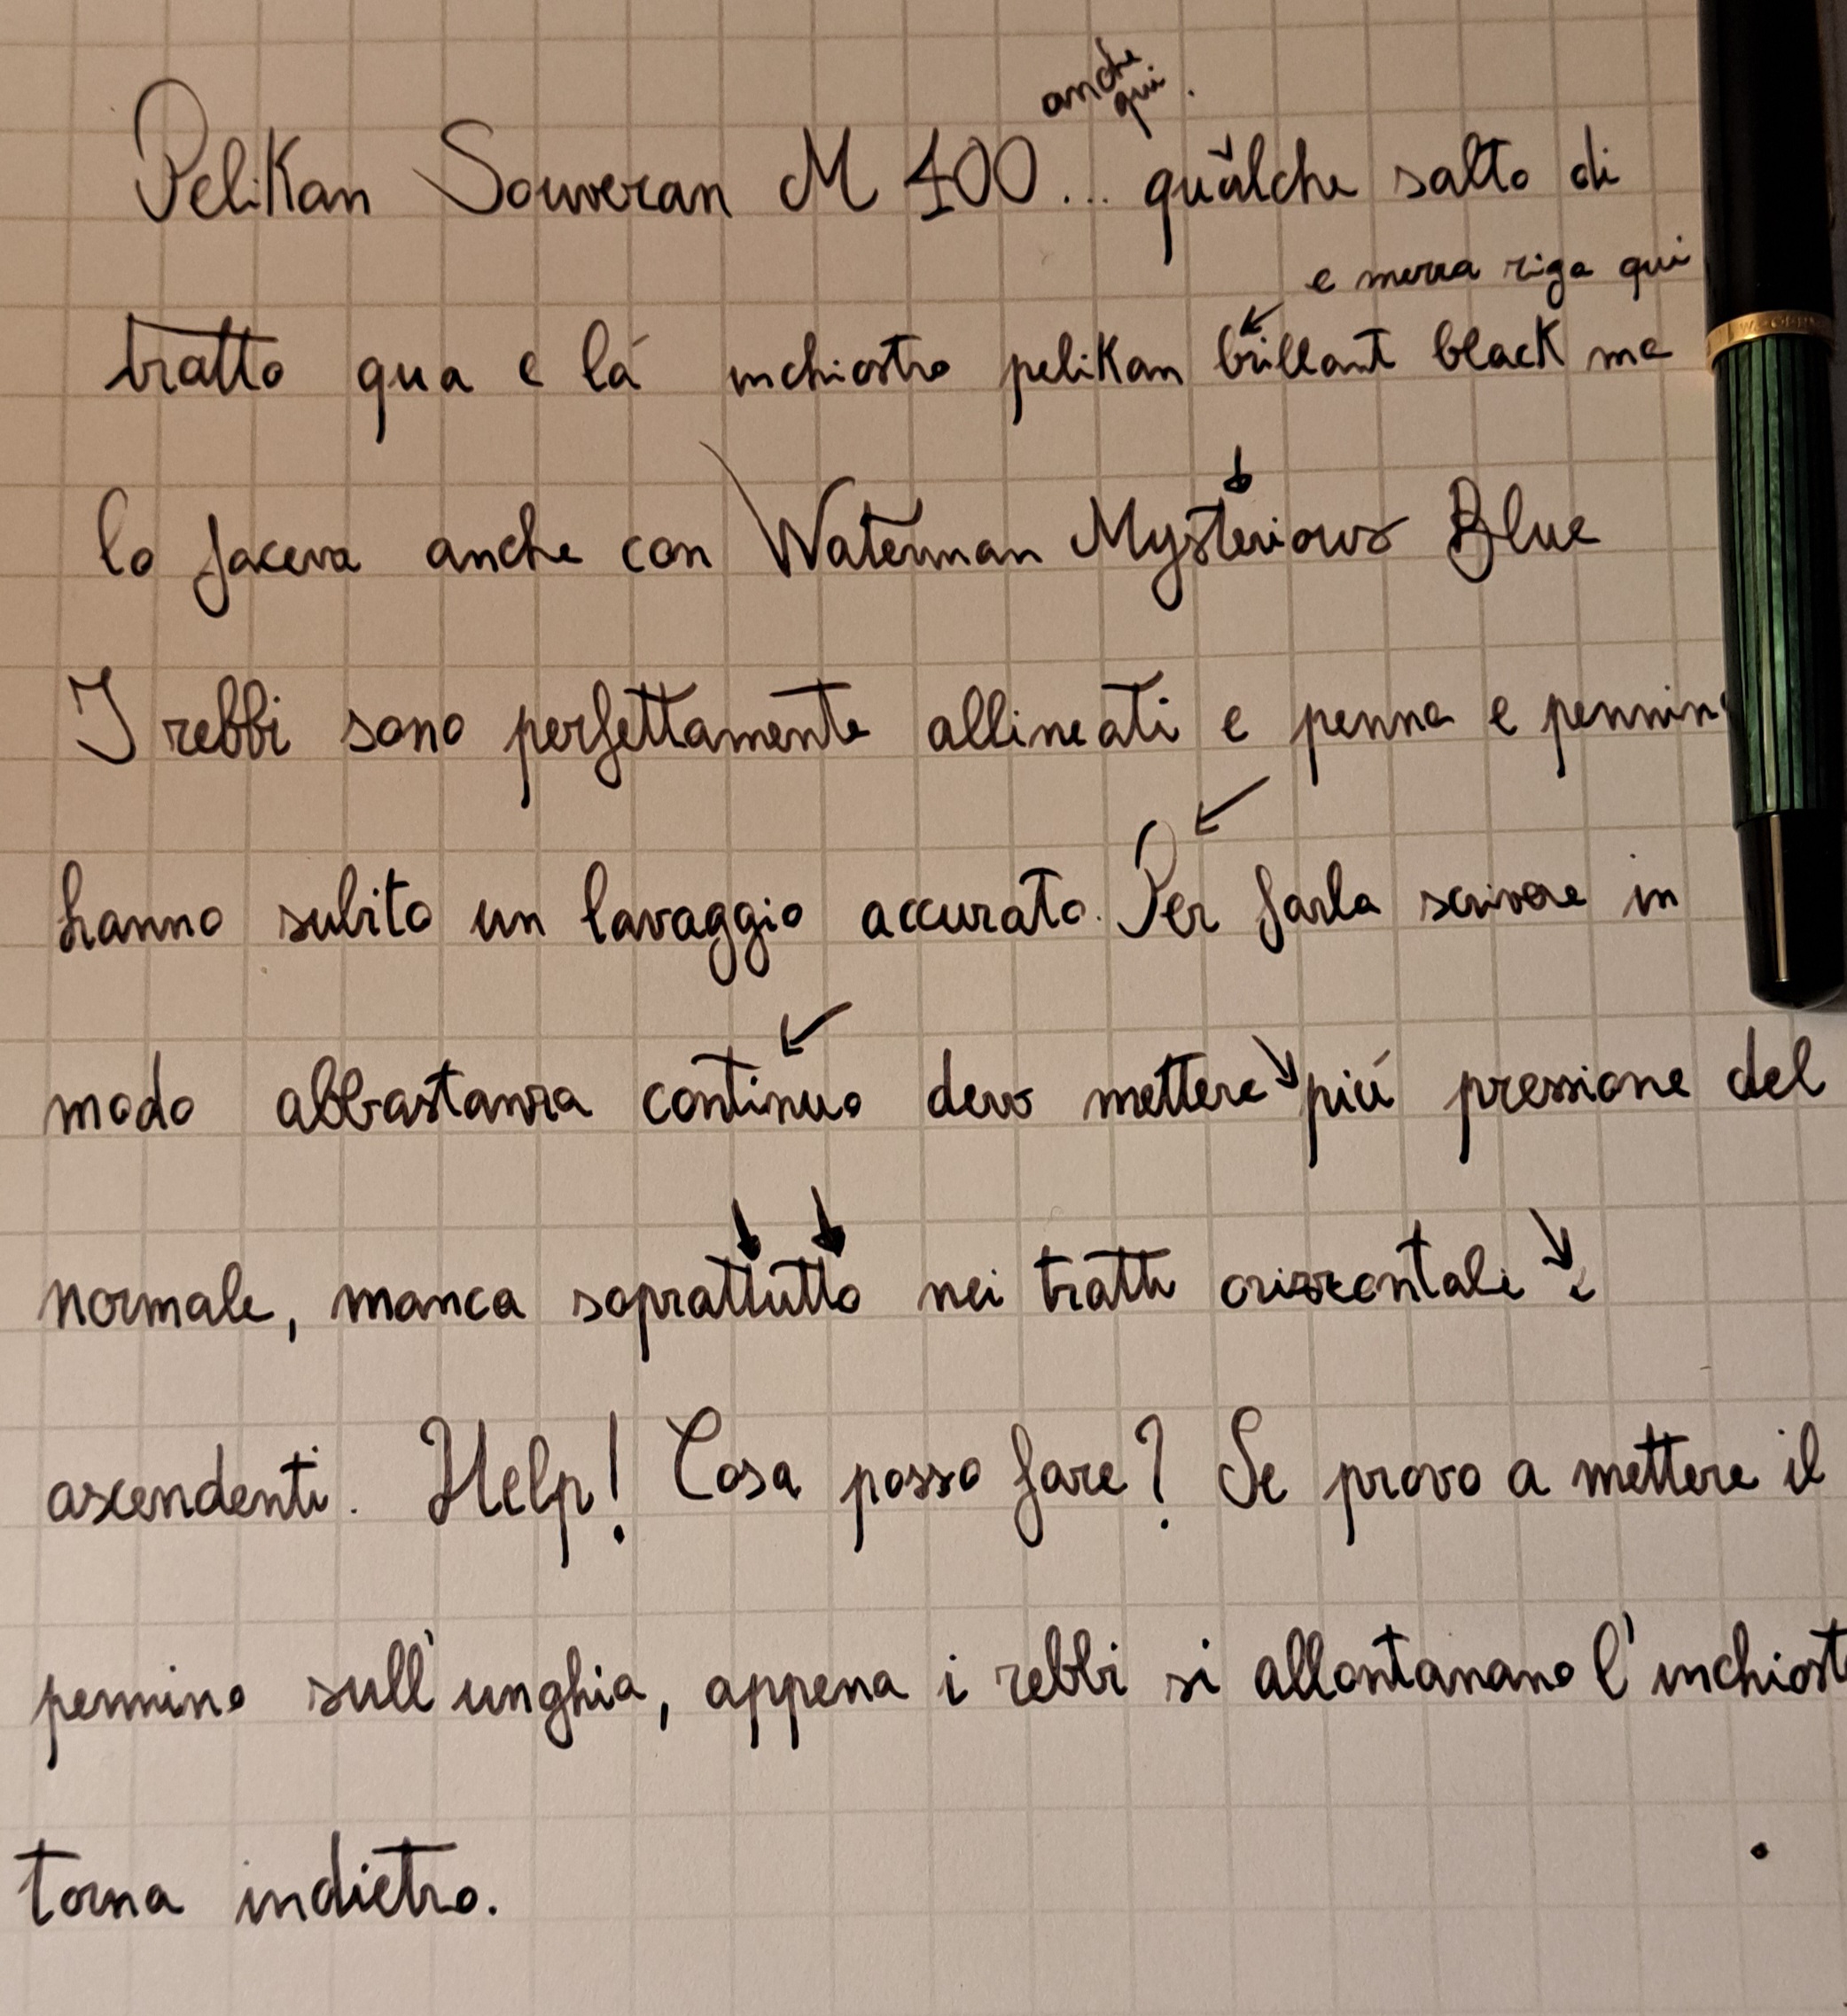 anche
qui.
Pelikan Souveran M 400... qualche salto di
e mezza riga qui
tratto qua e lá inchiostro pelikan brillant black ma
lo faceva anche con Waterman Mysterious Blue
I rebbi sono perfettamente allineati e penna e pennin
hanno subito un lavaggio accurato. Per farla scrivere in
modo abbastanza continuo devo mettere piú pressione del
normale, manca soprattutto nei tratti orizzontali e
ascendenti. Help! Cosa posso fare? Se provo a mettere il
pennino sull'unghia, appena i rebbi si allontanano l'inchiost
torna indietro.